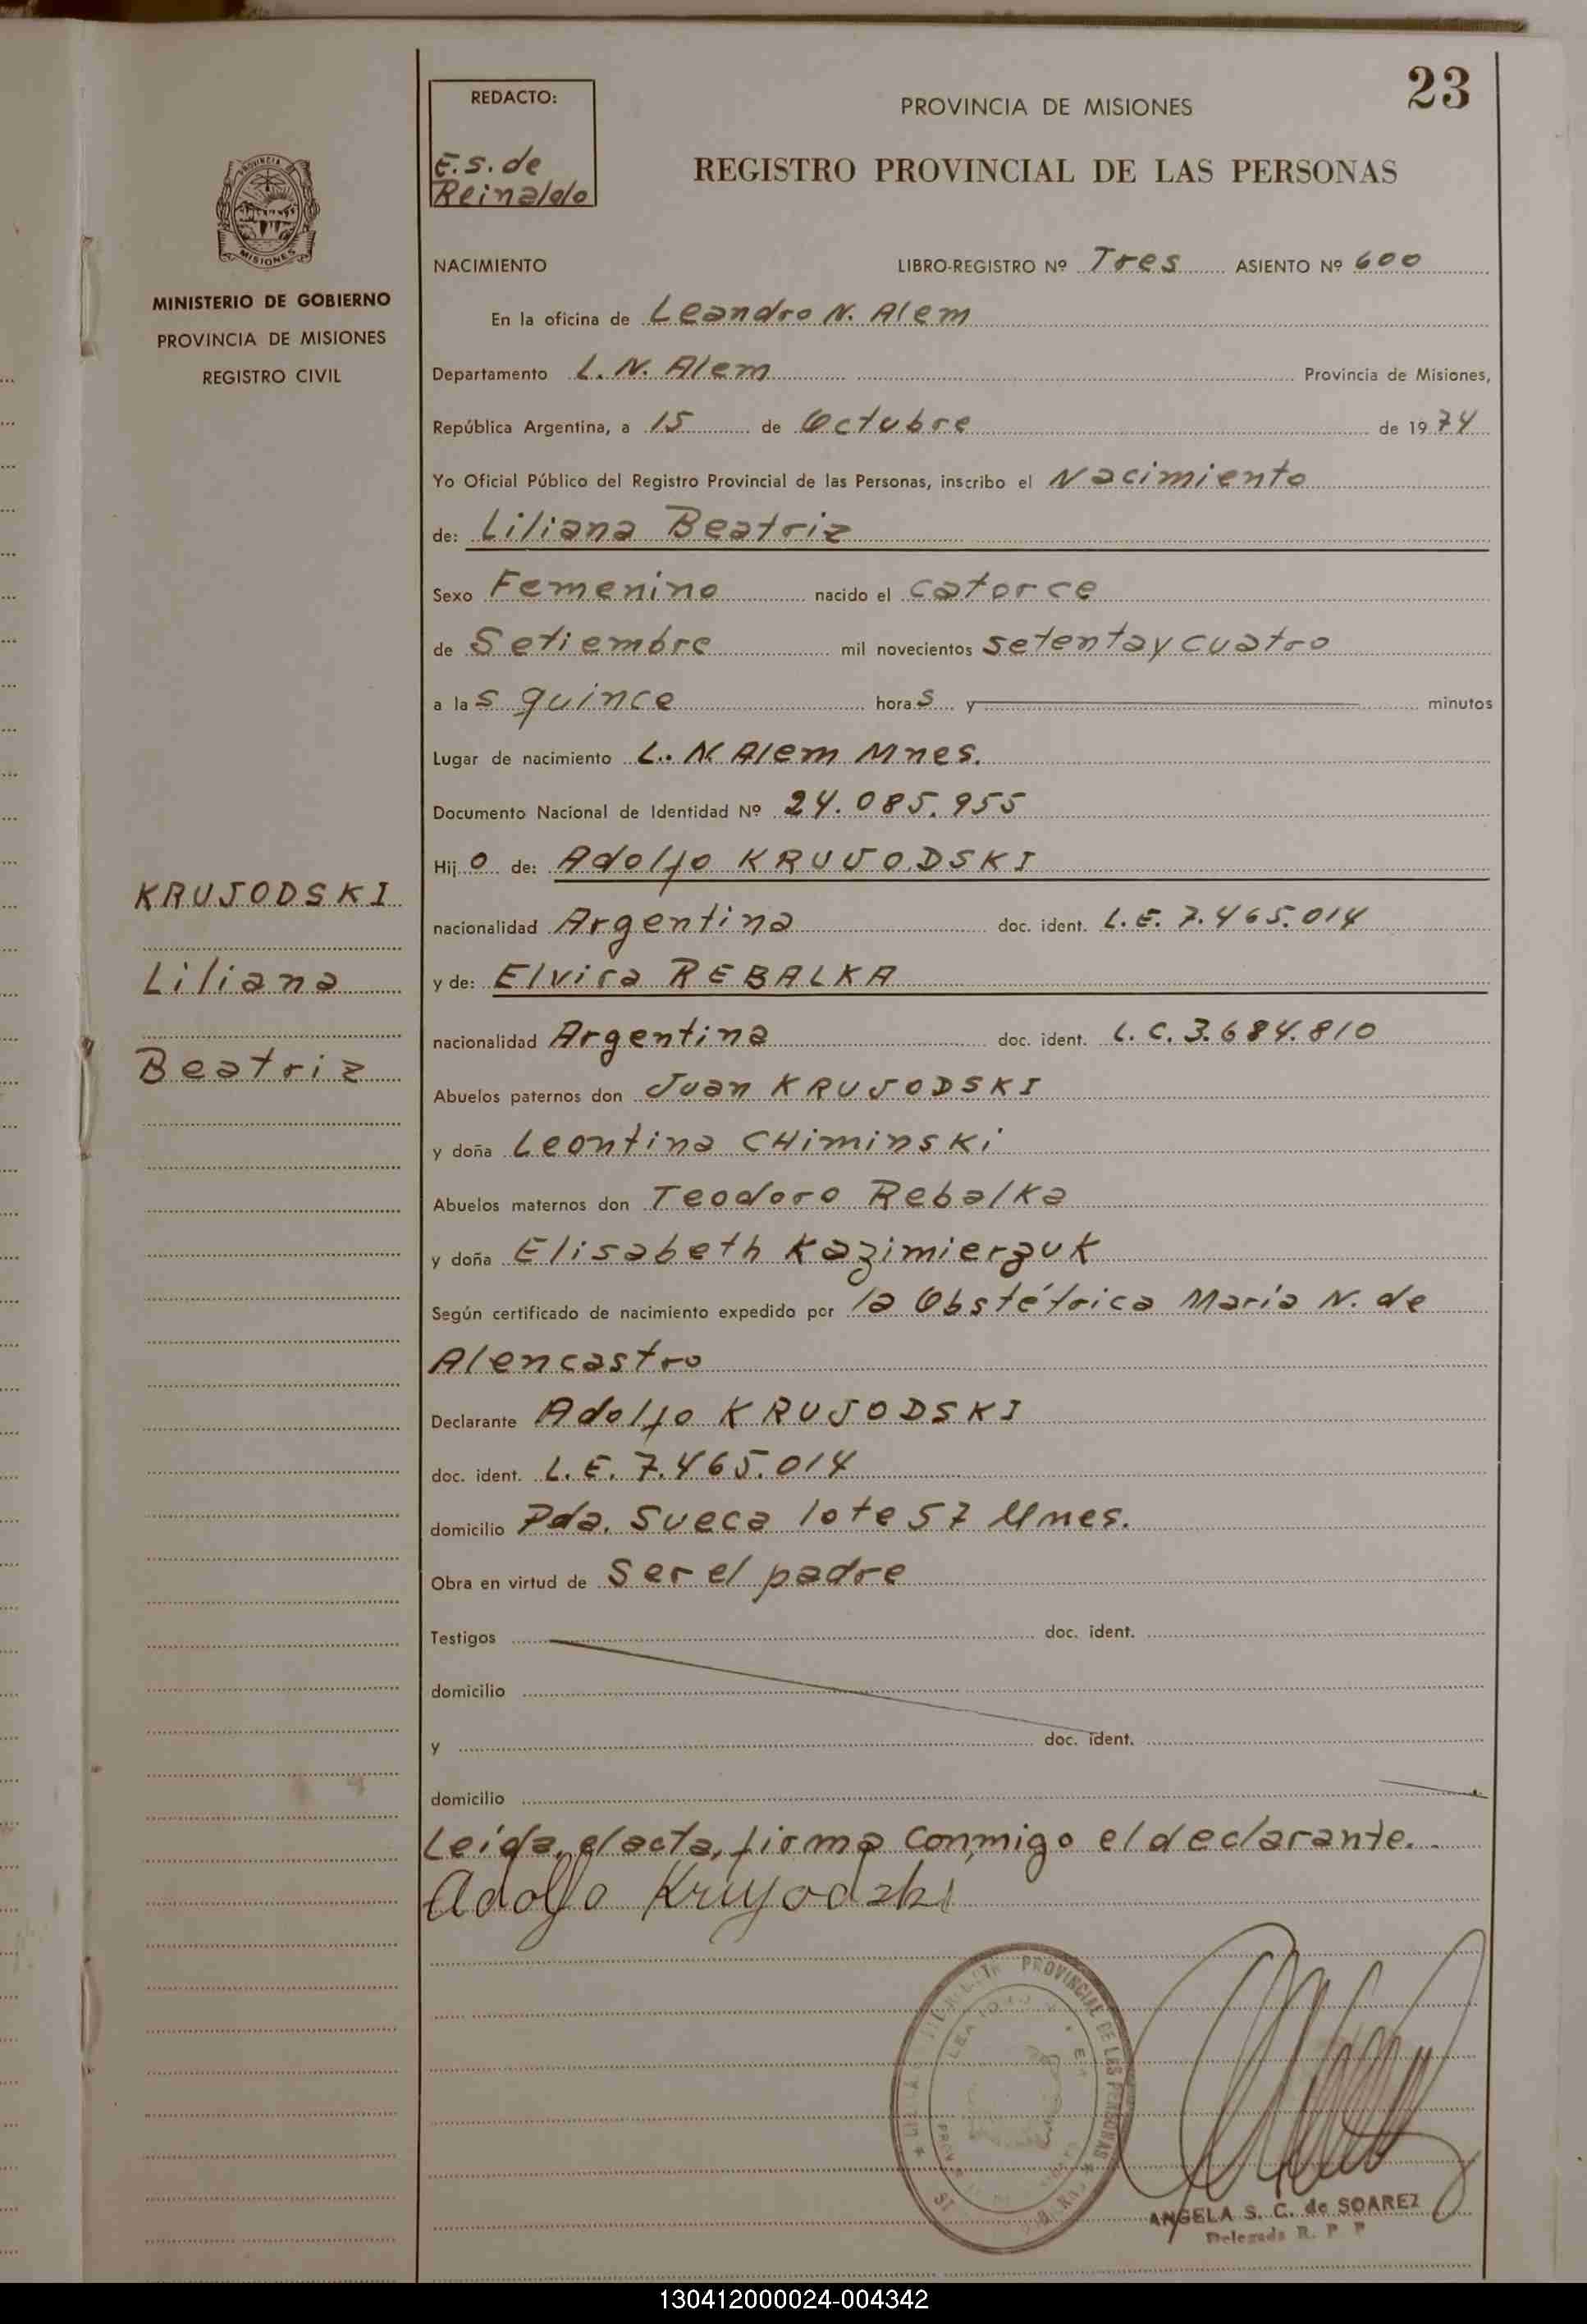 23
REDACTO:
E.S. de
Reinaldo
PROVINCIA DE MISIONES
REGISTRO PROVINCIAL DE LAS PERSONAS
MISIONES
MINISTERIO DE GOBIERNO
PROVINCIA DE MISIONES
REGISTRO CIVIL
NACIMIENTO LIBRO-REGISTRO Nº Tres ASIENTO Nº 600
En la oficina de Leandro N. Alem
Departamento L. N. Alem Provincia de Misiones,
República Argentina, a 15 de Octubre de 1974
Yo Oficial Público del Registro Provincial de las Personas, inscribo el Nacimiento
de: Liliana Beatriz
Sexo Femenino nacido el catorce
de Setiembre mil novecientos setenta y cuatro
a las quince horas y minutos
Lugar de nacimiento L. N. Alem Mnes.
Documento Nacional de Identidad Nº 24.085.955
Hijo de: Adolfo KRUJODSKI
KRUJODSKI
nacionalidad Argentina doc. ident. L.E. 7.465.014
Liliana
y de: Elvira REBALKA
nacionalidad Argentina doc. ident. L.C. 3.684.810
Beatriz
Abuelos paternos don Juan KRUJODSKI
y doña Leontina CHiminski
Abuelos maternos don Teodoro Rebalka
y doña Elisabeth Kazimierzuk
Según certificado de nacimiento expedido por la Obstétrica María N. de
Alencastro
Declarante Adolfo KRUJODSKI
doc. ident. L.E. 7.465.014
domicilio Pda. Sueca lote 57 Mnes.
Obra en virtud de Ser el padre
Testigos doc. ident.
domicilio
y doc. ident.
domicilio
Leída, el acta, firma conmigo el declarante.
Adolfo Kruyodzki
PROVINCIAL DE LAS PERSONAS
ANGELA S. C. de SOAREZ
Delegada R. P. P
130412000024-004342